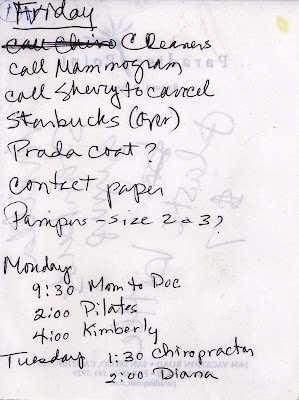 Friday
call Chiro Cleaners
call Mammogram
call Sherry to cancel
Starbucks (over)
Prada coat?
contact paper
Pampers - size 2 or 3?
Monday
9:30 Mom to Doc
2:00 Pilates
4:00 Kimberly
Tuesday 1:30 Chiropractor
2:00 Diana